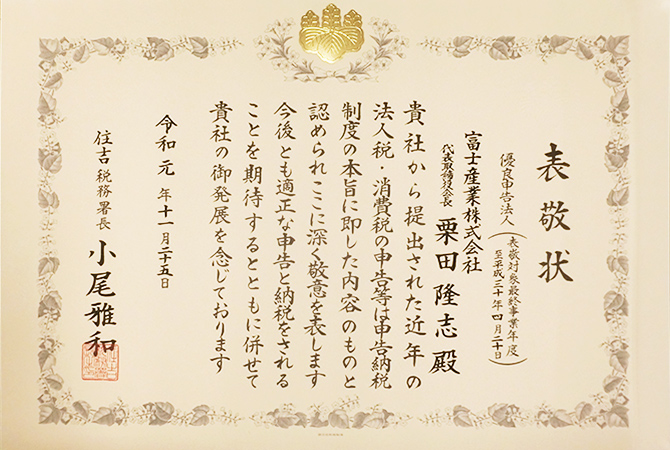 表敬状
優良申告法人
(表敬対象最終事業年度
至平成三十年四月二十日)
富士産業株式会社
代表取締役会長 栗田隆志 殿
貴社から提出された近年の
法人税・消費税の申告等は申告納税
制度の本旨に即した内容のものと
認められここに深く敬意を表します
今後とも適正な申告と納税をされる
ことを期待するとともに併せて
貴社の御発展を念じております
令和元年十一月二十五日
住吉税務署長 小尾雅和